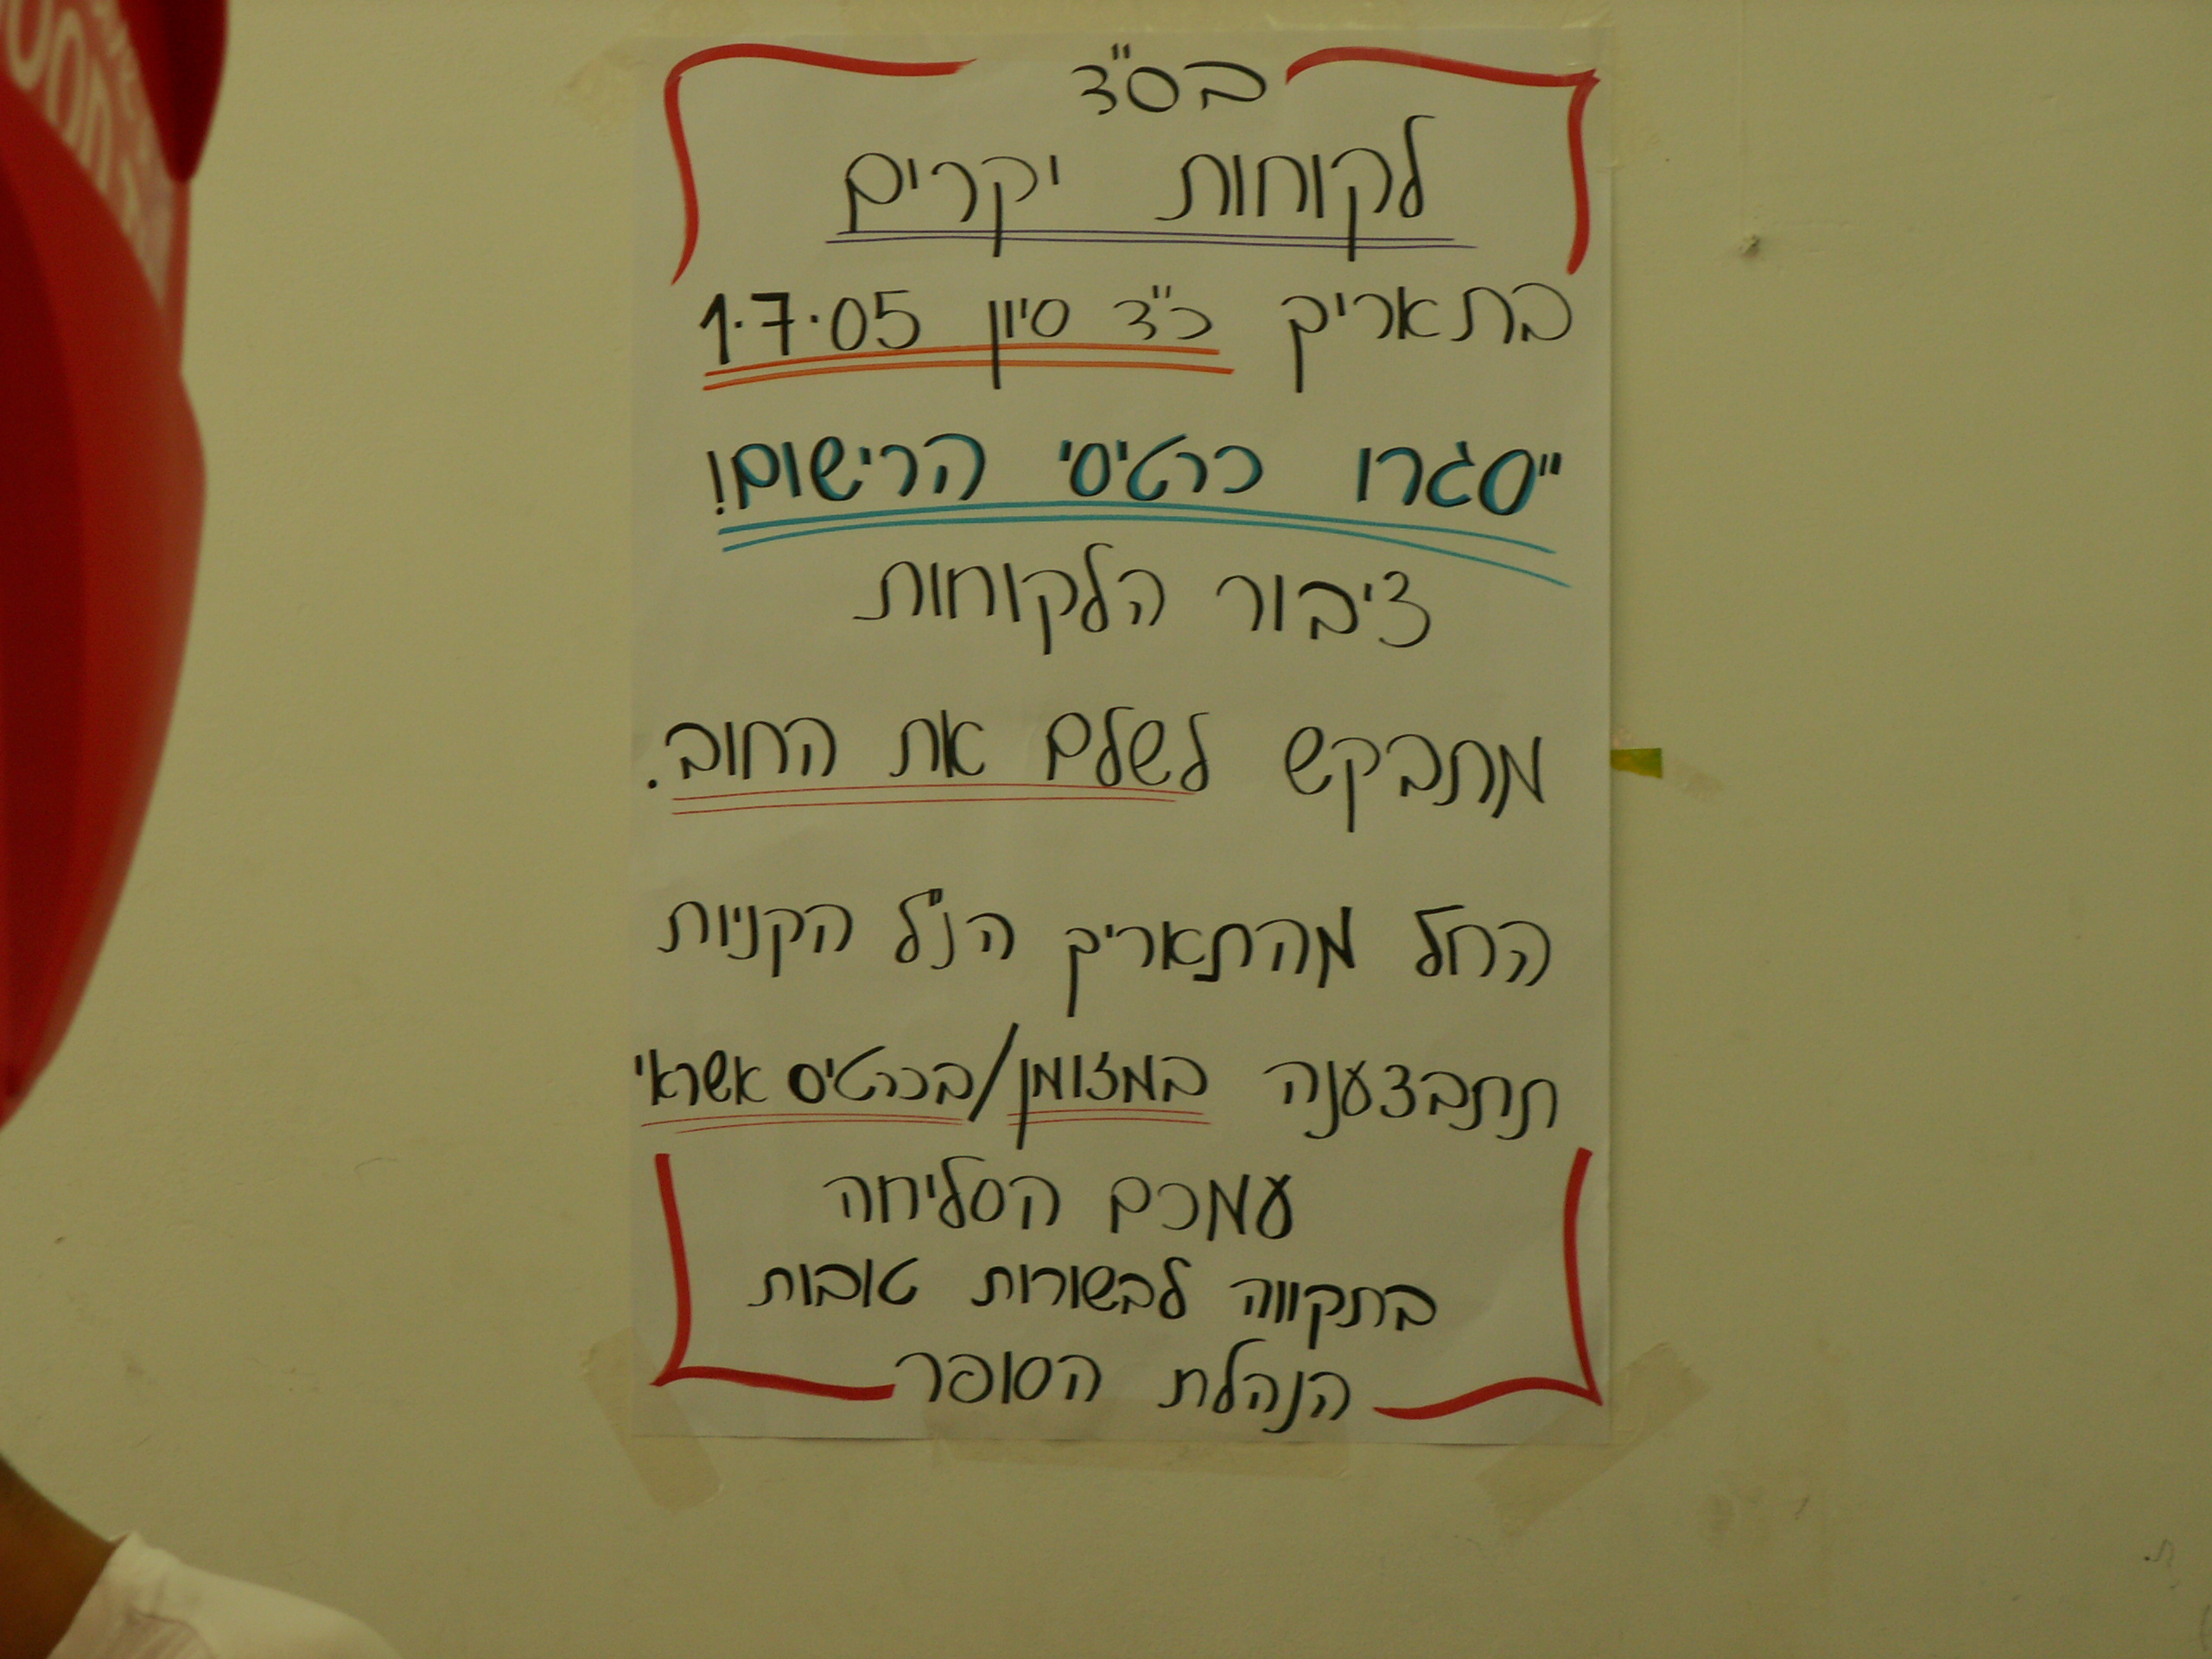 בס"ד
לקוחות יקרים
בתאריך כ"ד סיון 1.7.05
ייסגרו כרטיסי הרישום!
ציבור הלקוחות
מתבקש לשלם את החוב.
החל מהתאריך הנ"ל הקניות
תתבצענה במזומן/בכרטיס אשראי
עמכם הסליחה
בתקווה לבשורות טובות
הנהלת הסופר